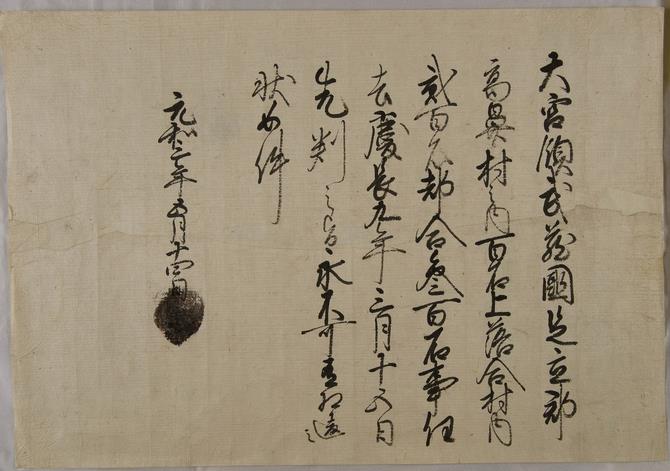 大宮領武蔵国足立郡
高鼻村之内百石上落合村内
貳百石都合叁百石事任
去慶長九年三月十五日
先判之旨永不可有相違之
状如件
元和三年五月十四日